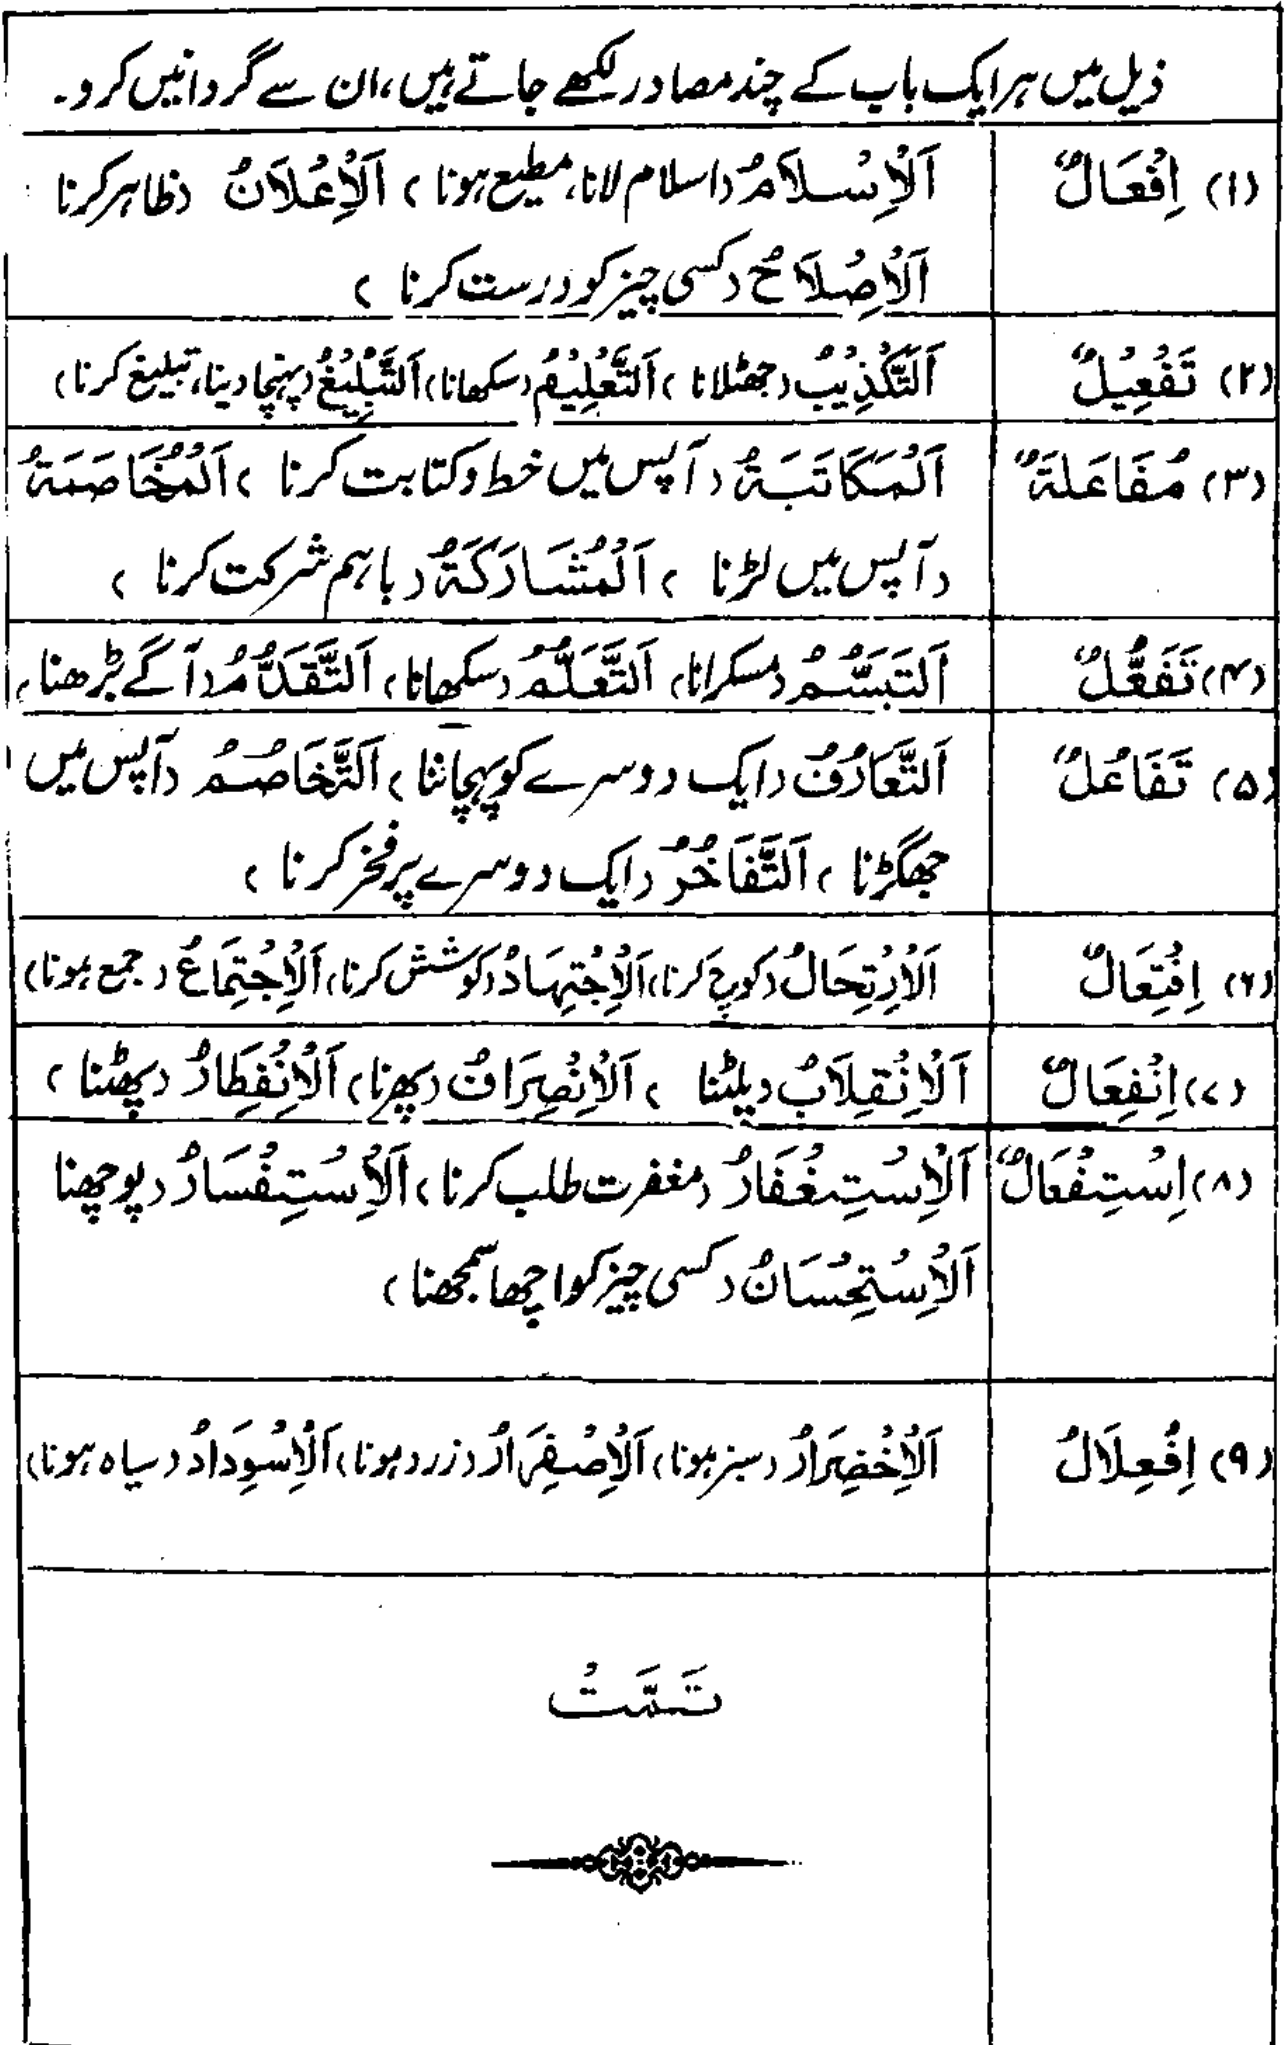 ذیل میں ہر ایک باب کے چند مصادر لکھے جاتے ہیں، ان سے گردانیں کرو۔
(۱) اِفْعَالٌ اَلْاِسْلَامُ (اسلام لانا، مطیع ہونا) اَلْاِعْلَانُ (ظاہر کرنا
اَلْاِصْلَاحُ (کسی چیز کو درست کرنا)
(۲) تَفْعِیْلٌ اَلتَّكْذِیْبُ (جھٹلانا) اَلتَّعْلِیْمُ (سکھانا) اَلتَّبْلِیْغُ (پہنچا دینا، تبلیغ کرنا)
(۳) مُفَاعَلَةٌ اَلْمُكَاتَبَةُ (آپس میں خط و کتابت کرنا) اَلْمُخَاصَمَةُ
(آپس میں لڑنا) اَلْمُشَارَكَةُ (باہم شرکت کرنا)
(۴) تَفَعُّلٌ اَلتَبَسُّمُ (مسکرانا) اَلتَّعَلُّمُ (سکھانا) اَلتَّقَدُّمُ (آگے بڑھنا)
(۵) تَفَاعُلٌ اَلتَّعَارُفُ (ایک دوسرے کو پہچاننا) اَلتَّخَاصُمُ (آپس میں
جھگڑنا) اَلتَّفَاخُرُ (ایک دوسرے پر فخر کرنا)
(۶) اِفْتِعَالٌ اَلْاِرْتِحَالُ (کوچ کرنا) اَلْاِجْتِهَادُ (کوشش کرنا) اَلْاِجْتِمَاعُ (جمع ہونا)
(۷) اِنْفِعَالٌ اَلْاِنْقِلَابُ (پلٹنا) اَلْاِنْصِرَافُ (پھرنا) اَلْاِنْفِطَارُ (پھٹنا)
(۸) اِسْتِفْعَالٌ اَلْاِسْتِغْفَارُ (مغفرت طلب کرنا) اَلْاِسْتِفْسَارُ (پوچھنا
اَلْاِسْتِحْسَانُ (کسی چیز کو اچھا سمجھنا)
(۹) اِفْعِلَالٌ اَلْاِخْضِرَارُ (سبز ہونا) اَلْاِصْفِرَارُ (زرد ہونا) اَلْاِسْوِدَادُ (سیاہ ہونا)
تَمَّتْ